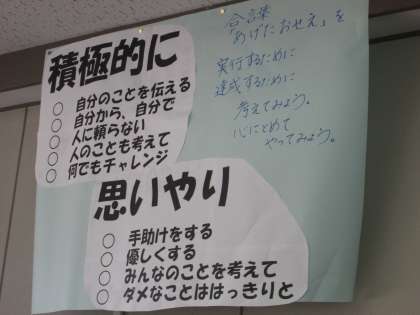 積極的に
○ 自分のことを伝える
○ 自分から、自分で
○ 人に頼らない
○ 人のことも考えて
○ 何でもチャレンジ
思いやり
○ 手助けをする
○ 優しくする
○ みんなのことを考えて
○ ダメなことははっきりと
合言葉
「あげにおせえ」を
実行するために
達成するために
考えてみよう。
心にとめて
やってみよう。